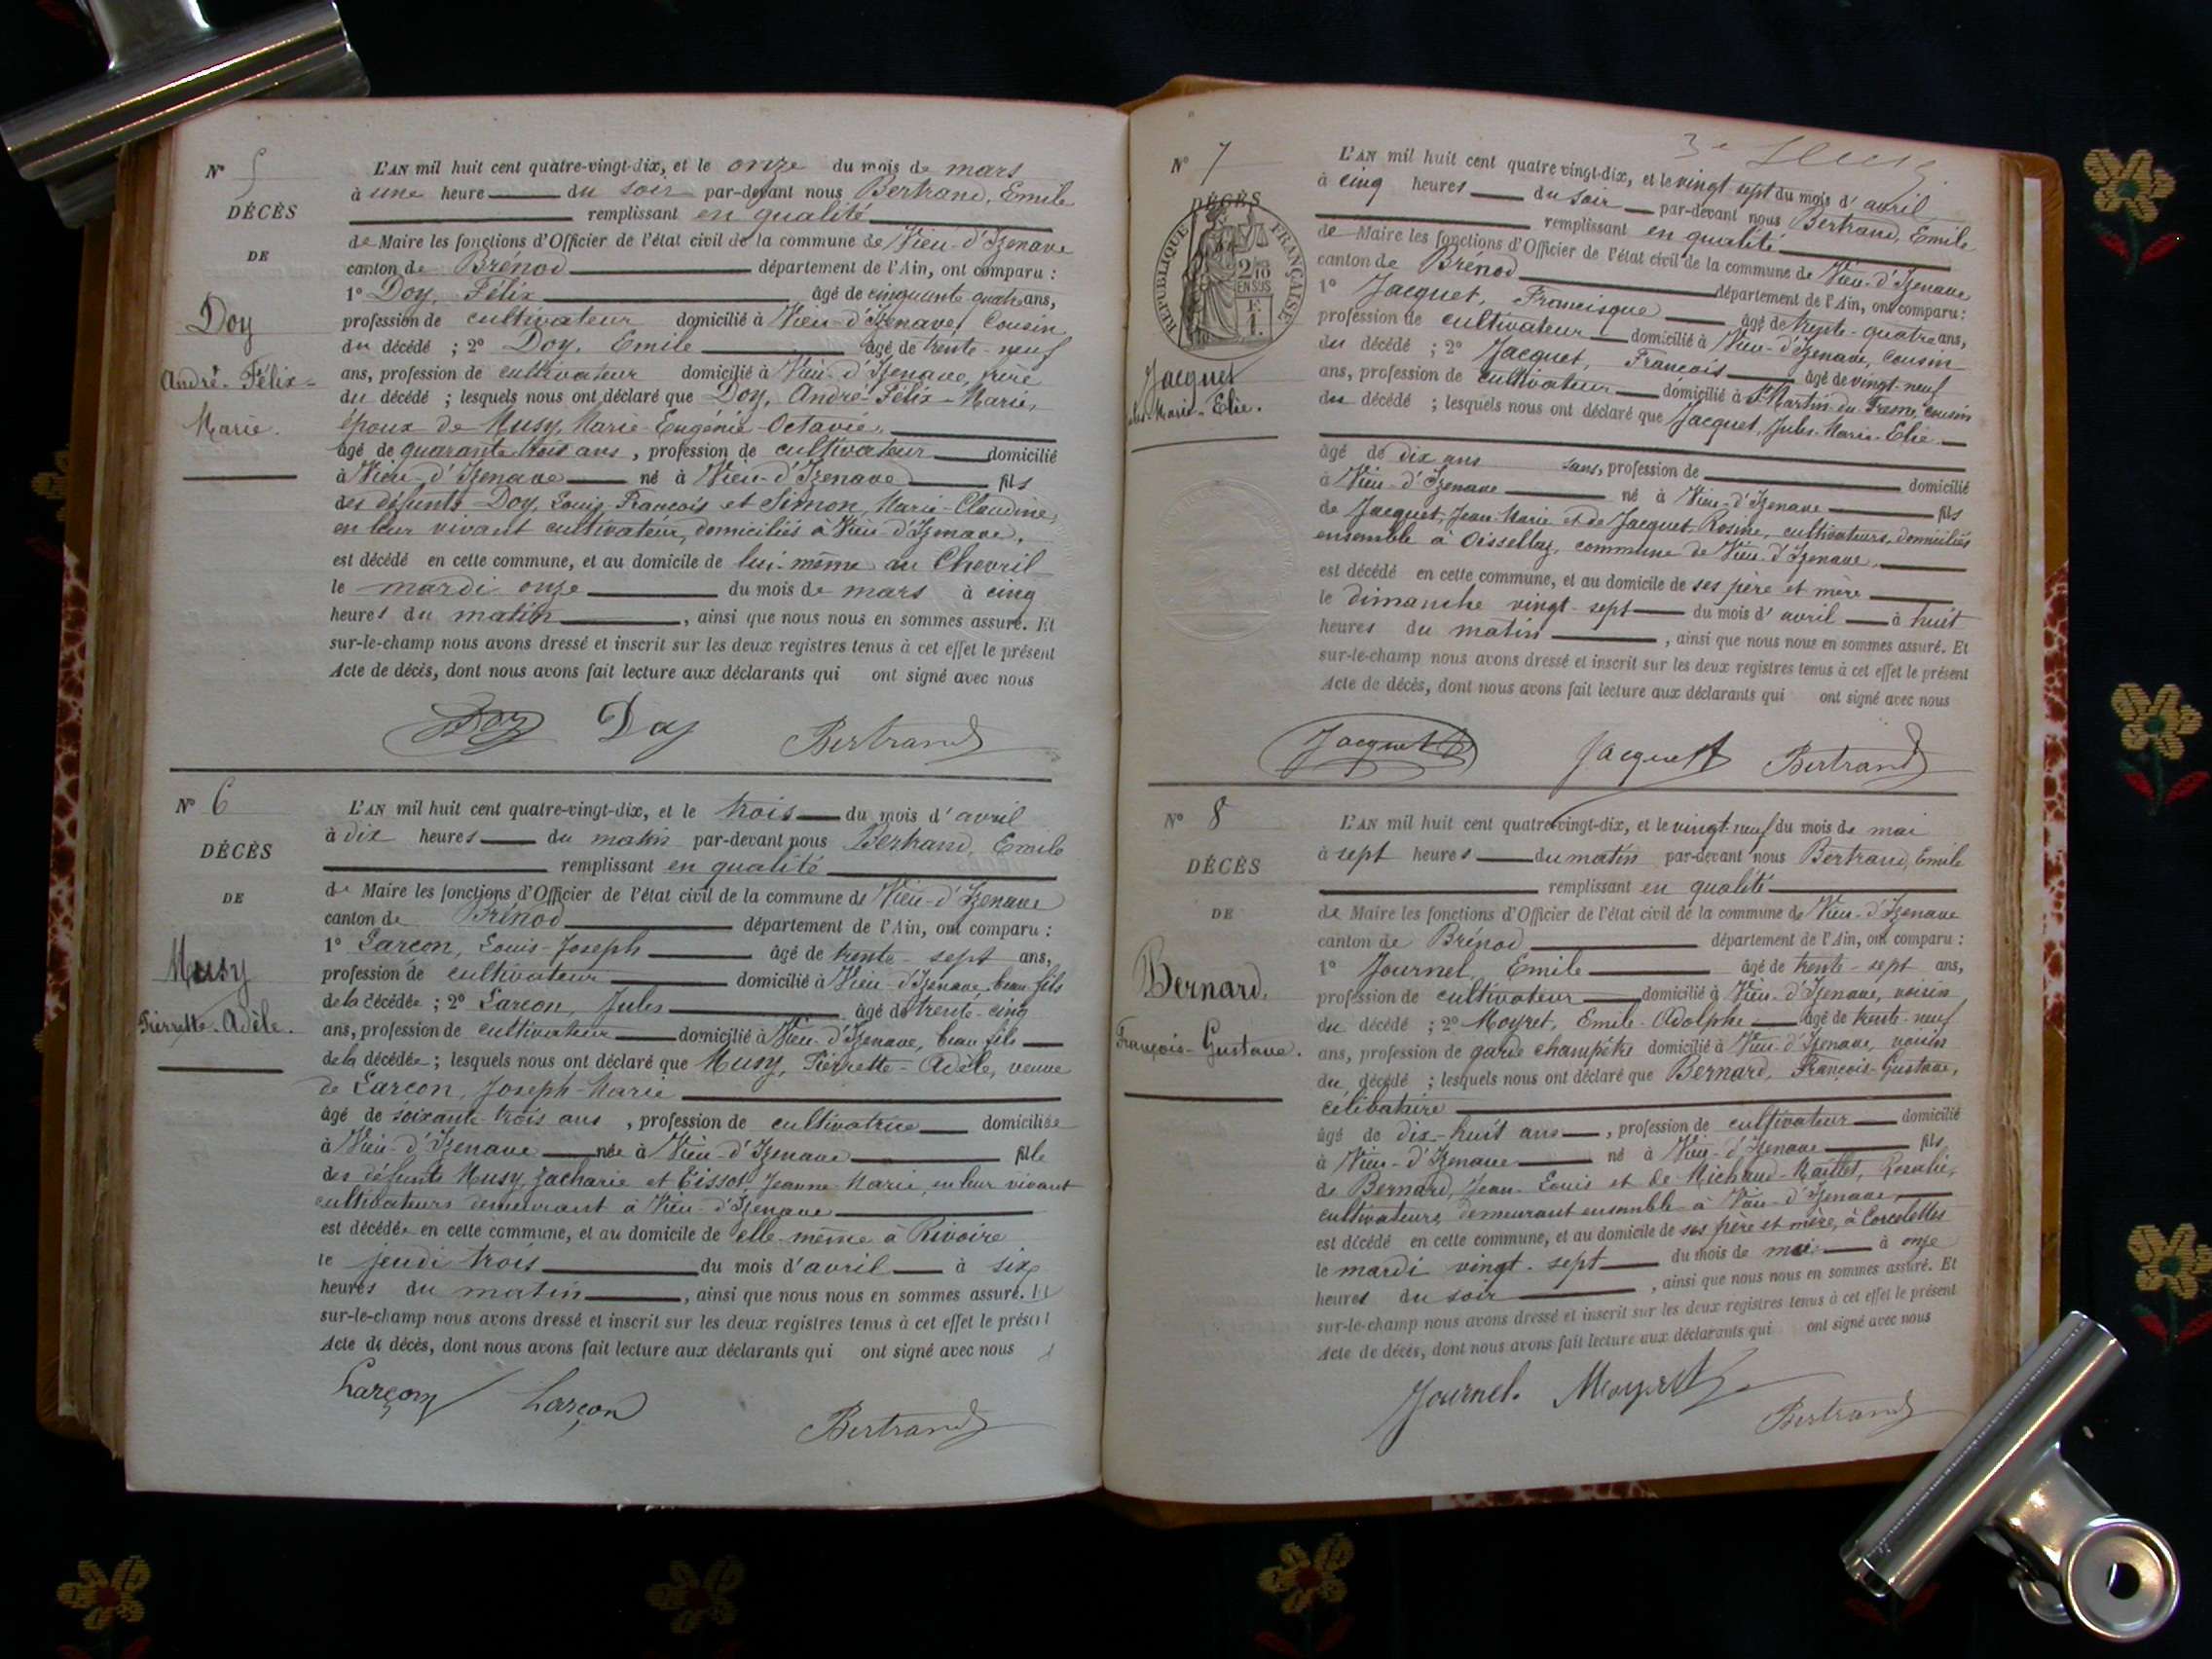 N° 5
DÉCÈS
DE
Doy
André-Félix-
Marie.
L'AN mil huit cent quatre-vingt-dix, et le onze du mois de mars
à une heure du soir par-devant nous Bertrand, Emile
remplissant en qualité
de Maire les fonctions d'Officier de l'état civil de la commune de Vieu-d'Izenave
canton de Brénod département de l'Ain, ont comparu :
1° Doy, Félix âgé de cinquante quatre ans,
profession de cultivateur domicilié à Vieu-d'Izenave, Cousin
du décédé ; 2° Doy, Emile âgé de trente-neuf
ans, profession de cultivateur domicilié à Vieu-d'Izenave, frère
du décédé ; lesquels nous ont déclaré que Doy, André-Félix-Marie,
époux de Musy, Marie-Eugénie-Octavie,
âgé de quarante trois ans, profession de cultivateur domicilié
à Vieu-d'Izenave né à Vieu-d'Izenave fils
des défunts Doy, Louis-François et Simon, Marie-Claudine,
en leur vivant cultivateurs, domiciliés à Vieu-d'Izenave,
est décédé en cette commune, et au domicile de lui-même au Chevril
le mardi onze du mois de mars à cinq
heures du matin, ainsi que nous nous en sommes assuré. Et
sur-le-champ nous avons dressé et inscrit sur les deux registres tenus à cet effet le présent
Acte de décès, dont nous avons fait lecture aux déclarants qui ont signé avec nous
Doy Doy Bertrand
N° 6
DÉCÈS
DE
Musy
Pierrette-Adèle.
L'AN mil huit cent quatre-vingt-dix, et le trois du mois d'avril
à dix heures du matin par-devant nous Bertrand, Emile
remplissant en qualité
de Maire les fonctions d'Officier de l'état civil de la commune de Vieu-d'Izenave
canton de Brénod département de l'Ain, ont comparu :
1° Larçon, Louis-Joseph âgé de trente-sept ans,
profession de cultivateur domicilié à Vieu-d'Izenave, beau fils
de la décédée ; 2° Larçon, Jules âgé de trente-cinq
ans, profession de cultivateur domicilié à Vieu-d'Izenave, beau fils
de la décédée ; lesquels nous ont déclaré que Musy, Pierrette-Adèle, veuve
de Larçon, Joseph-Marie
âgé de soixante-trois ans, profession de cultivatrice domiciliée
à Vieu-d'Izenave née à Vieu-d'Izenave fille
des défunts Musy, Zacharie et Tissot, Jeanne-Marie, en leur vivant
cultivateurs demeurant à Vieu-d'Izenave
est décédée en cette commune, et au domicile de elle-même à Rivoire
le jeudi trois du mois d'avril à six
heures du matin, ainsi que nous nous en sommes assuré. Et
sur-le-champ nous avons dressé et inscrit sur les deux registres tenus à cet effet le présent
Acte de décès, dont nous avons fait lecture aux déclarants qui ont signé avec nous
Larçon Larçon
Bertrand
3e
N° 7
DÉCÈS
RÉPUBLIQUE FRANÇAISE
2/10 EN SUS
Jacquet
Jules-Marie-Elie.
L'AN mil huit cent quatre-vingt-dix, et le vingt sept du mois d'avril
à cinq heures du soir par-devant nous Bertrand, Emile
remplissant en qualité
de Maire les fonctions d'Officier de l'état civil de la commune de Vieu-d'Izenave
canton de Brénod département de l'Ain, ont comparu :
1° Jacquet, Francisque âgé de trente-quatre ans,
profession de cultivateur domicilié à Vieu-d'Izenave, cousin
du décédé ; 2° Jacquet, François âgé de vingt-neuf
ans, profession de cultivateur domicilié à St Martin-du-Fresne, cousin
du décédé ; lesquels nous ont déclaré que Jacquet, Jules-Marie-Elie
âgé de dix ans sans, profession de domicilié
à Vieu-d'Izenave né à Vieu-d'Izenave fils
de Jacquet, Jean-Marie et de Jacquet, Rosine, cultivateurs, domiciliés
ensemble à Oisellaz, commune de Vieu-d'Izenave,
est décédé en cette commune, et au domicile de ses père et mère
le dimanche vingt-sept du mois d'avril à huit
heures du matin, ainsi que nous nous en sommes assuré. Et
sur-le-champ nous avons dressé et inscrit sur les deux registres tenus à cet effet le présent
Acte de décès, dont nous avons fait lecture aux déclarants qui ont signé avec nous
Jacquet Jacquet Bertrand
N° 8
DÉCÈS
DE
Bernard,
François-Gustave.
L'AN mil huit cent quatre-vingt-dix, et le vingt-neuf du mois de mai
à sept heures du matin par-devant nous Bertrand, Emile
remplissant en qualité
de Maire les fonctions d'Officier de l'état civil de la commune de Vieu-d'Izenave
canton de Brénod département de l'Ain, ont comparu :
1° Journel, Emile âgé de trente-sept ans,
profession de cultivateur domicilié à Vieu-d'Izenave, voisin
du décédé ; 2° Moyret, Emile-Adolphe âgé de trente-neuf
ans, profession de garde champêtre domicilié à Vieu-d'Izenave, voisin
du décédé ; lesquels nous ont déclaré que Bernard, François-Gustave,
célibataire
âgé de dix-huit ans, profession de cultivateur domicilié
à Vieu-d'Izenave né à Vieu-d'Izenave fils
de Bernard, Jean-Louis et de Michaud-Maillet, Rosalie,
cultivateurs demeurant ensemble à Vieu-d'Izenave,
est décédé en cette commune, et au domicile de ses père et mère, à Corcelettes
le mardi vingt-sept du mois de mai à onze
heures du soir, ainsi que nous nous en sommes assuré. Et
sur-le-champ nous avons dressé et inscrit sur les deux registres tenus à cet effet le présent
Acte de décès, dont nous avons fait lecture aux déclarants qui ont signé avec nous
Journel. Moyret
Bertrand